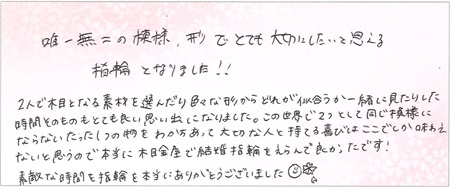 唯一無二の模様、形でとても大切にしたいと思える
指輪となりました!!
2人で木目となる素材を選んだり色々な形からどれが似合うか一緒に見たりした
時間そのものもとても良い思い出になりました。この世界で2つとして同じ模様に
ならないたった1つの物をわかちあって大切な人と持てる喜びはここでしか味わえ
ないと思うので本当に木目金屋で結婚指輪をえらんで良かったです!
素敵な時間を指輪を本当にありがとうございました